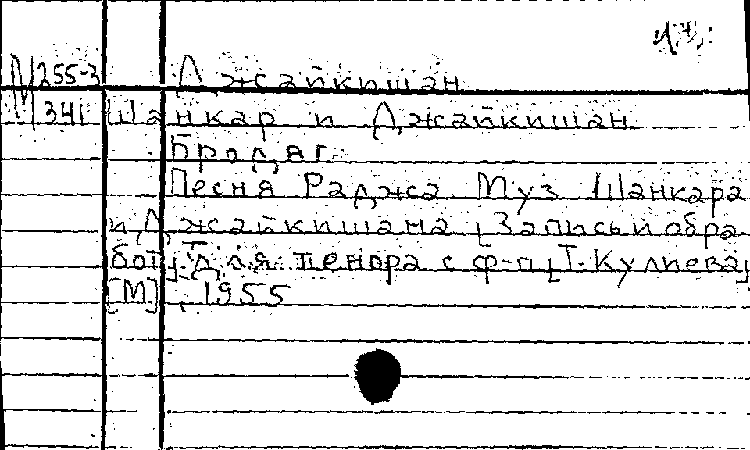 М255-3 Джайкишан
М341 Шанкар и Джайкишан.
Бродяг
Песня Раджа Муз Шанкара
и Джайкишана [Запись и обра
бот] Для тенора с ф-п [Т. Кулиева]
[М], 1955